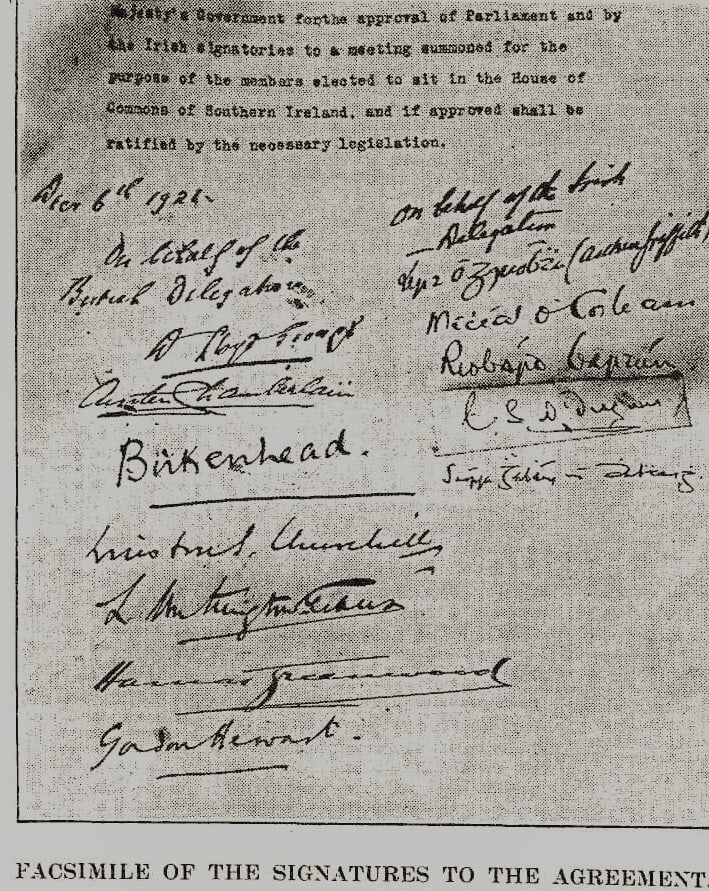 Majesty's Government forthe approval of Parliament and by
the Irish signatories to a meeting summoned for the
purpose of the members elected to sit in the House of
Commons of Southern Ireland, and if approved shall be
ratified by the necessary legislation.
Decr 6th 1921.
On behalf of the
British Delegation
D Lloyd George
Austen Chamberlain
Birkenhead.
Winston S. Churchill
L Worthington Evans
Hamar Greenwood
Gordon Hewart.
On behalf of the Irish
Delegation
Art Ó Gríobhtha (Arthur Griffith)
Micéál Ó Coileáin
Riobárd Bartún
E. S. Ó Dugain
Seórsa Ghabháin Uí Dhubhthaigh
FACSIMILE OF THE SIGNATURES TO THE AGREEMENT.